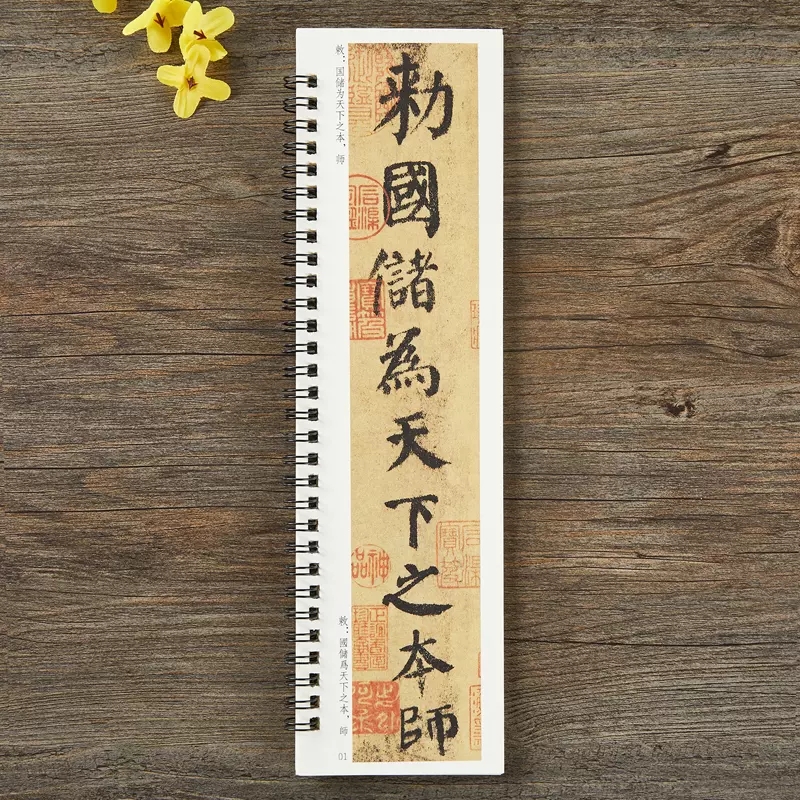 勑國儲為天下之本師
敕：国储为天下之本，師
敕：國儲爲天下之本，師
01
神品